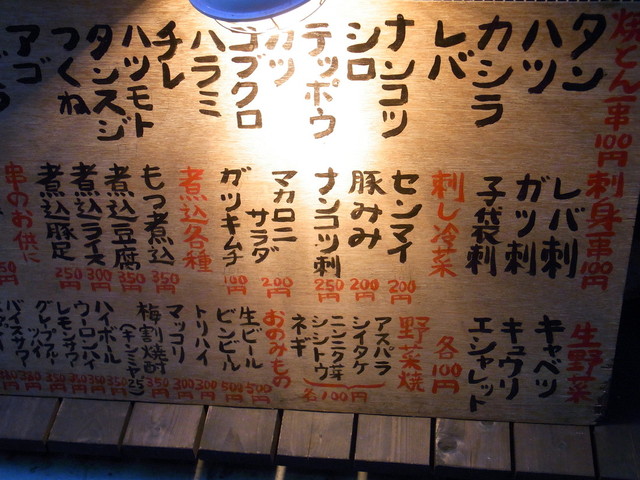 焼とん一串100円
タン
ハツ
カシラ
レバ
ナンコツ
シロ
テッポウ
ガツ
コブクロ
ハラミ
チレ
ハツモト
タンスジ
つくね
アゴ
刺身一串100円
レバ刺
ガツ刺
子袋刺
刺し冷菜
センマイ 200円
豚みみ 200円
ナンコツ刺 250円
マカロニサラダ 200円
ガツキムチ 100円
煮込各種
もつ煮込 350円
煮込豆腐 350円
煮込ライス 300円
煮込豚足 250円
串のお供に
生野菜
キャベツ
キュウリ
エシャレット
各100円
野菜焼
アスパラ
シイタケ
ニンニク芽
シシトウ
ネギ
各100円
おのみもの
生ビール 500円
ビンビール 500円
トリハイ 300円
マッコリ 300円
梅割焼酎(キンミヤ25°) 350円
ハイボール 350円
ウーロンハイ
レモンサワー
バイスサワー